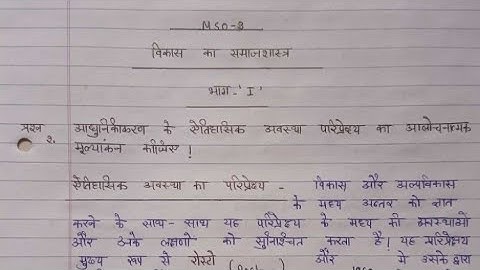 MSO-3
विकास का समाजशास्त्र
भाग-'I'
प्रश्न आधुनिकीकरण के ऐतिहासिक अवस्था परिप्रेक्ष्य का आलोचनात्मक
2. मूल्यांकन कीजिए !
ऐतिहासिक अवस्था का परिप्रेक्ष्य - विकास और अल्पविकास
के मध्य अन्तर को ज्ञात
करने के साथ-साथ यह परिप्रेक्ष्य के मध्य की अवस्थाओं
और उनके लक्षणों को सुनिश्चित करता है! यह परिप्रेक्ष्य
मुख्य रूप से रोस्टो और में उसके द्वारा